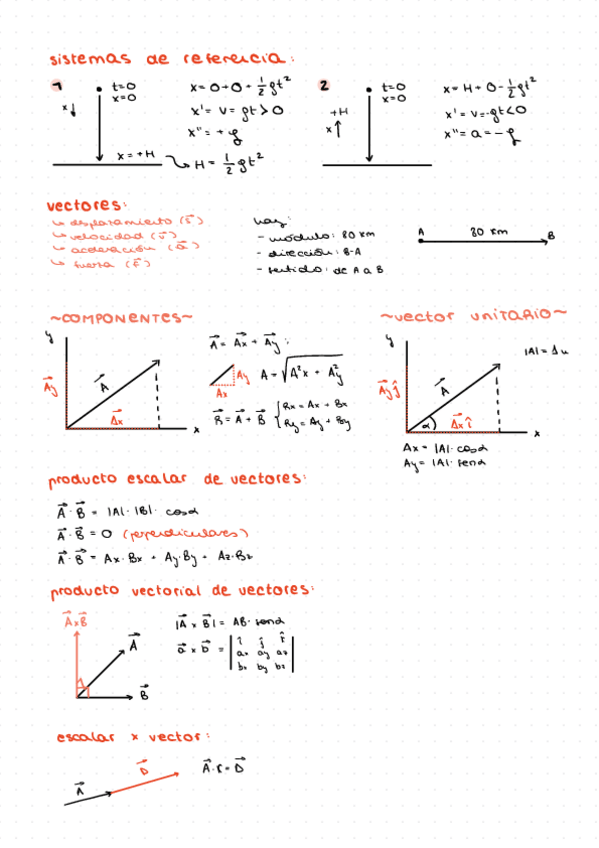 sistemas de referencia:
1
t=0
x=0
x↓
x=+H
x=0+0+1/2gt²
x'=v=gt>0
x''=+g
H=1/2gt²
2
t=0
x=0
+H
x↑
x=H+0-1/2gt²
x'=v=-gt<0
x''=a=-g
vectores:
↳ desplazamiento (s⃗)
↳ velocidad (v⃗)
↳ aceleración (a⃗)
↳ fuerza (F⃗)
hay:
- módulo: 80 km
- dirección: B-A
- sentido: de A a B
A 80 km B
~COMPONENTES~
y
A⃗y
A⃗
A⃗x
x
A⃗ = A⃗x + A⃗y:
Ay
Ax
A = √A²x + A²y
R⃗ = A⃗ + B⃗ { Rx = Ax + Bx
Ry = Ay + By
~vector UNITARIO~
y
A⃗y ĵ
A⃗
α
A⃗x î
x
|A| = Δu
Ax = |A| · cosα
Ay = |A| · senα
producto escalar de vectores:
A⃗ · B⃗ = |A| · |B| · cosα
A⃗ · B⃗ = 0 (perpendiculares)
A⃗ · B⃗ = Ax·Bx + Ay·By + Az·Bz
producto vectorial de vectores:
A⃗xB⃗
A⃗
B⃗
|A⃗ x B⃗| = AB · senα
a⃗ x b⃗ = | î ĵ k̂ |
| ax ay az |
| bx by bz |
escalar x vector:
A⃗
D⃗
A⃗ · r = D⃗